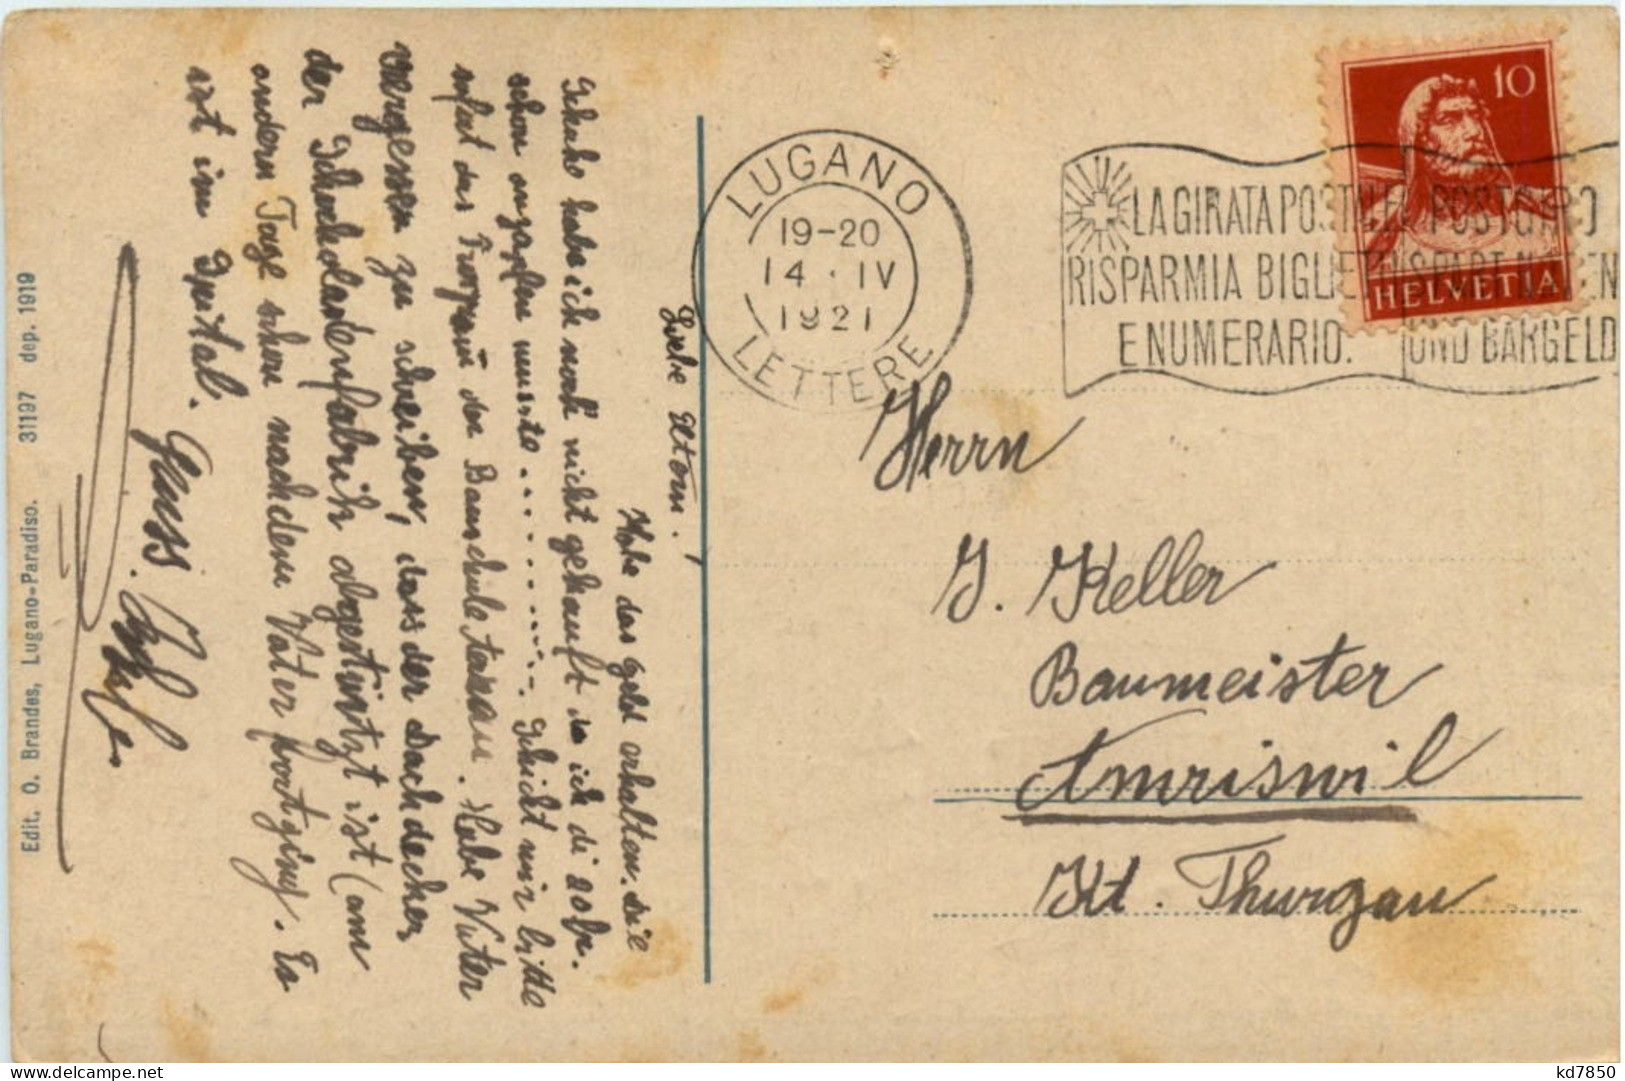 Liebe Eltern!
Habe das Geld erhalten. Die
Schuhe habe ich noch nicht gekauft da ich di
schon anzapfen musste.......... Schickt mir bitte
das der Bauschule
vergessen zu schreiben, dass der Dachdecker
der Schockoladenfabrik abgestürtzt ist (am
andern Tage schon nachdem Vater fortging. Es
ist im Spital.
Gruss.
Edit. O. Brandes, Lugano-Paradiso. 31197 dep. 1919
LUGANO
19-20
14·IV
1921
LETTERE
LA GIRATA POSTALE
RISPARMIA BIGLIETTI
E NUMERARIO.
POSTGIRO
SPART NOTEN
UND BARGELD
10
HELVETIA
Herrn
J. Keller
Baumeister
Amriswil
Kt. Thurgau
kd7850